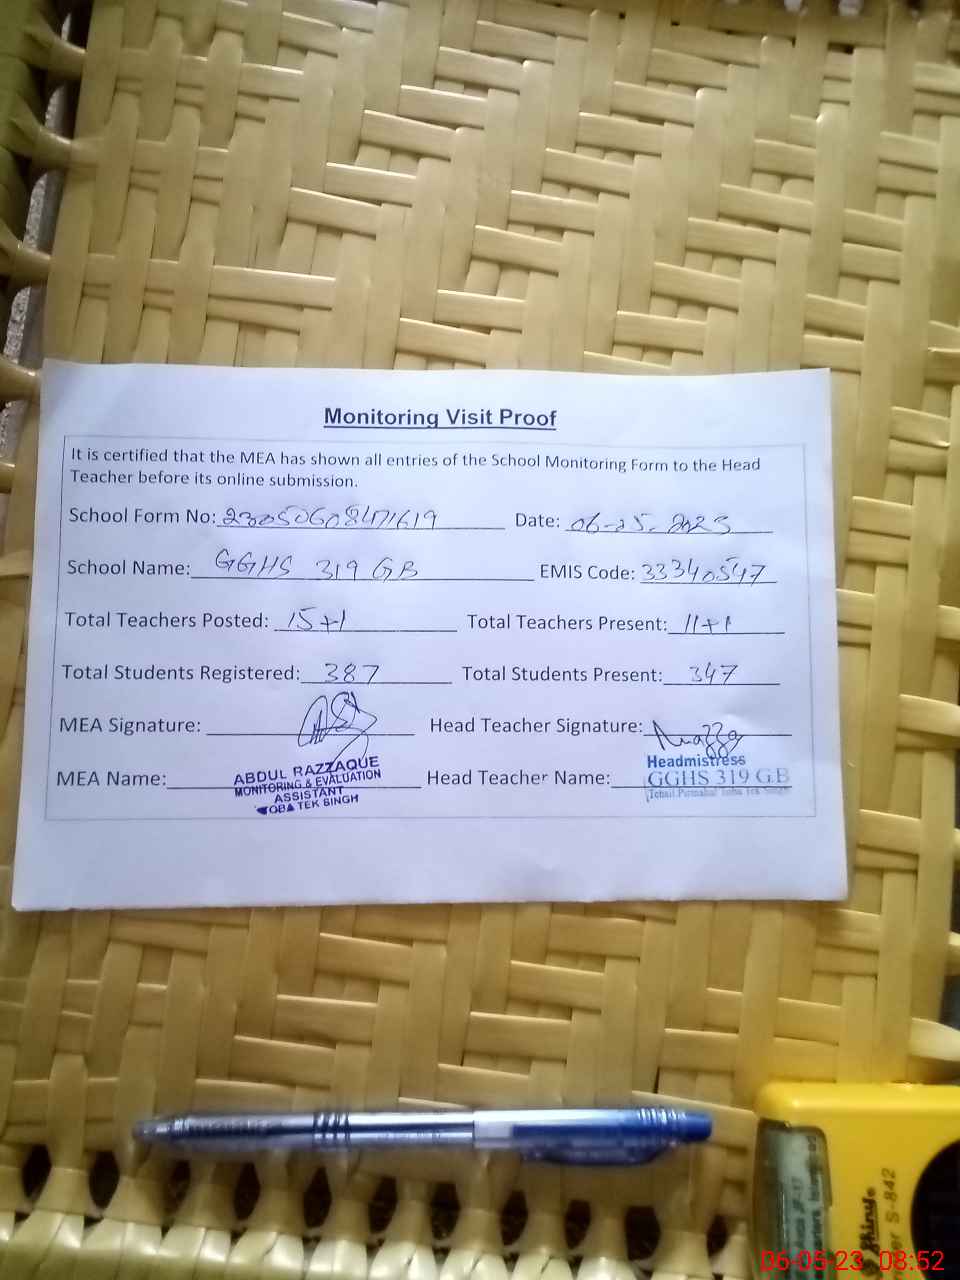 Monitoring Visit Proof
It is certified that the MEA has shown all entries of the School Monitoring Form to the Head
Teacher before its online submission.
School Form No: Date: 06-05-2023
School Name: GGHS 319 GB EMIS Code: 33340547
Total Teachers Posted: 15+1 Total Teachers Present: 11+1
Total Students Registered: 387 Total Students Present: 347
MEA Signature: Head Teacher Signature:
MEA Name: Head Teacher Name:
ABDUL RAZZAQUE
MONITORING & EVALUATION
ASSISTANT
TEK SINGH
Headmistress
GGHS 319 G.B
Tehsil Pirmahal Toba Tek Singh
Shiny
S-842
06-05-23 08:52